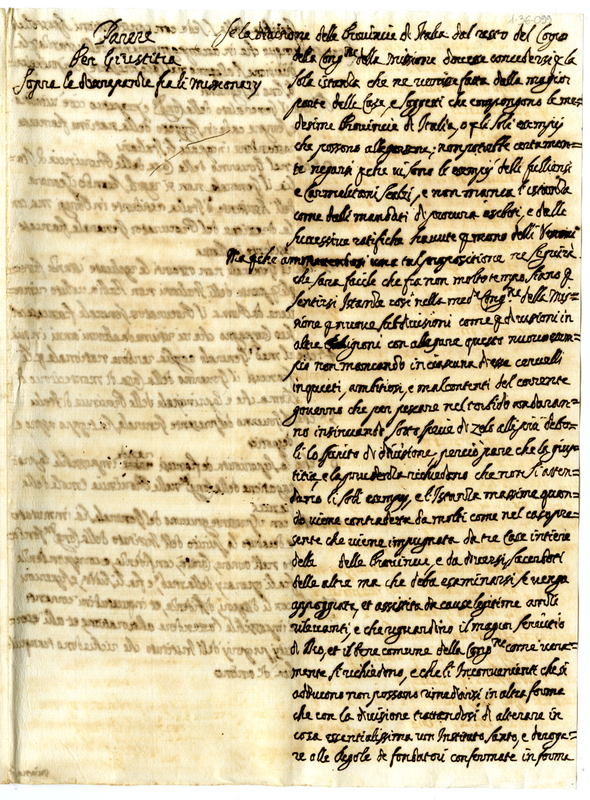 1-26-099
Parere
Per Giustitia
Sopra le domande fra li Missionarij
Se la divisione delle Provincie di Italia dal resto del Corpo
della Cong.ne della Missione dovesse concedersi p la
sola istanza che ne venisse fatta dalla maggior
parte delle Case, e Soggetti che compongono le me=
desime Provincie di Italia, o p li soli esempij
che possono allegarsene, non potrebbe certamen=
te negarsi p che vi sono le esempij delli fulliensi
e Carmelitani Scalzi, e non manca l'istanza
come dalli mandati di procura esibiti, e dalle
successive ratifiche havute p mano delli
Ma p che ammettendosi una tal propositione ne seguirà
che sarà facile che fra non molto tempo siano p
sentirsi Istanze così nella med.a Cong.ne della Mis=
sione p nuove subdivisioni come p divisioni in
altre Religioni con allegare questo nuovo esem=
pio non mancando in ciascuna d'esse cervelli
inquieti, ambitiosi, e malcontenti del corrente
governo che per pescare nel torbido andaran=
no insinuando sotto specie di zelo alli più debo=
li lo spirito di divisione, perciò pare che la giusti=
titia, e la prudenza richiedano che non si atten=
dano li soli esempij, e l'Istanza massime quan=
do viene contradetta da molti come nel caso pre=
sente che viene impugnata da tre Case intiere
della delle Provincie, e da diversi Sacerdoti
delle altre ma che deba esaminarsi se venga
appoggiata, et assistita da cause legitime
rilevanti, e che riguardino il maggior servitio
di Dio, et il bene comune della Cong.ne come vera=
mente si richiedono, e che li Inconvenienti che si
adducono non possano rimediarsi in altra forma
che con la divisione trattandosi di alterare in
cosa essentialissima un Instituto santo, e deroga=
re alle Regole de fondatori confermate in forma